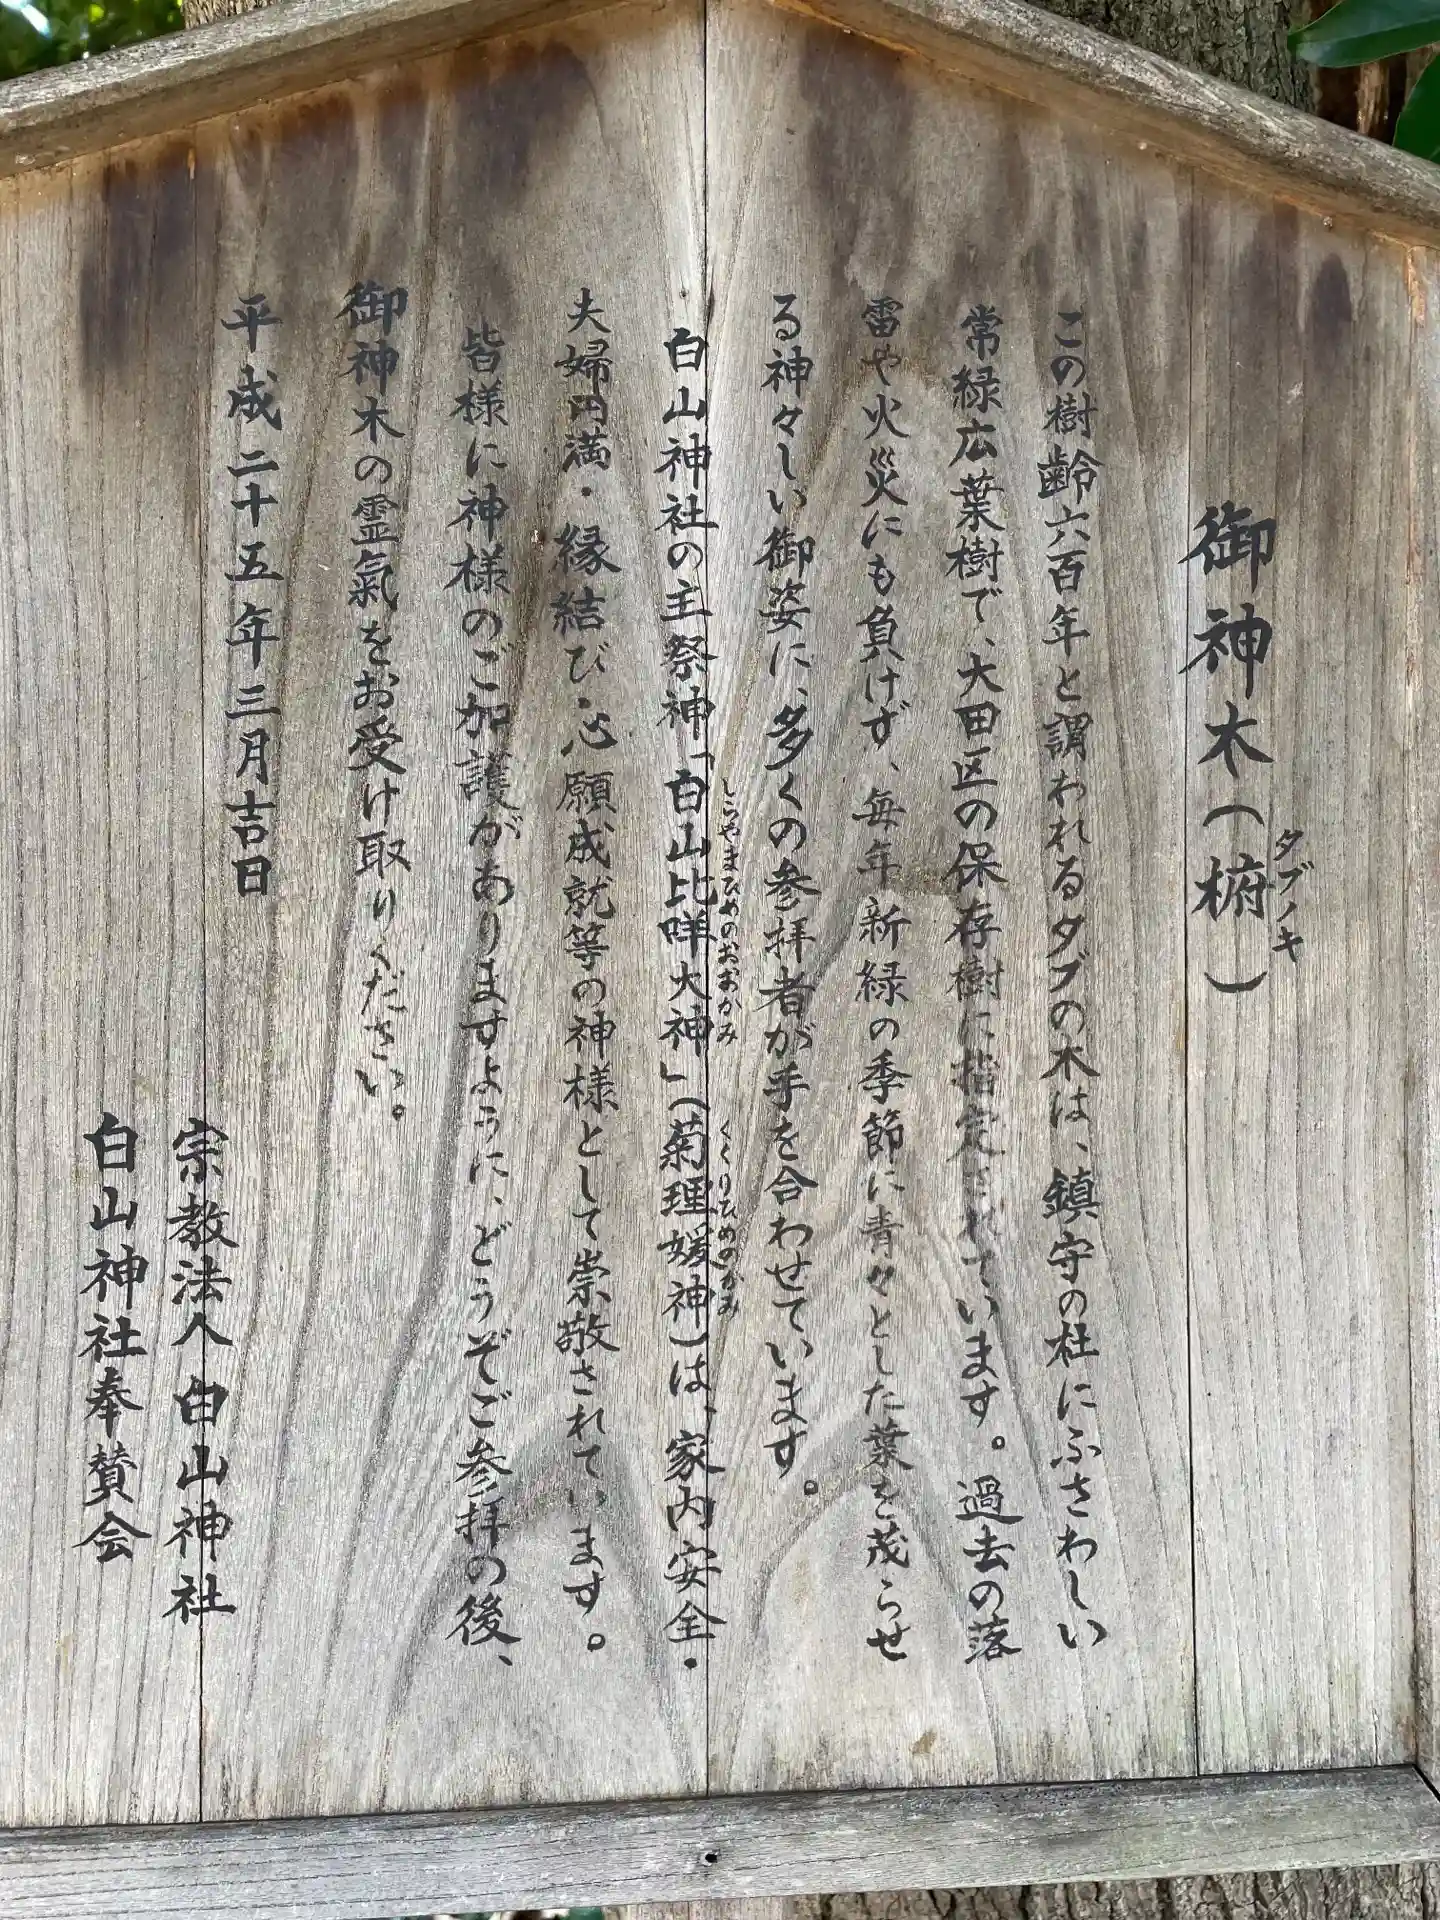 御神木(椨)
タブノキ
この樹齢六百年と謂われるタブの木は、鎮守の杜にふさわしい
常緑広葉樹で、大田区の保存樹に指定されています。過去の落
雷や火災にも負けず、毎年新緑の季節に青々とした葉を茂らせ
る神々しい御姿に、多くの参拝者が手を合わせています。
白山神社の主祭神「白山比咩大神」(菊理媛神)は、家内安全・
しらやまひめのおおかみ
くくりひめのかみ
夫婦円満・縁結び・心願成就等の神様として崇敬されています。
皆様に神様のご加護がありますように、どうぞご参拝の後、
御神木の霊氣をお受け取りください。
平成二十五年三月吉日
宗教法人白山神社
白山神社奉賛会